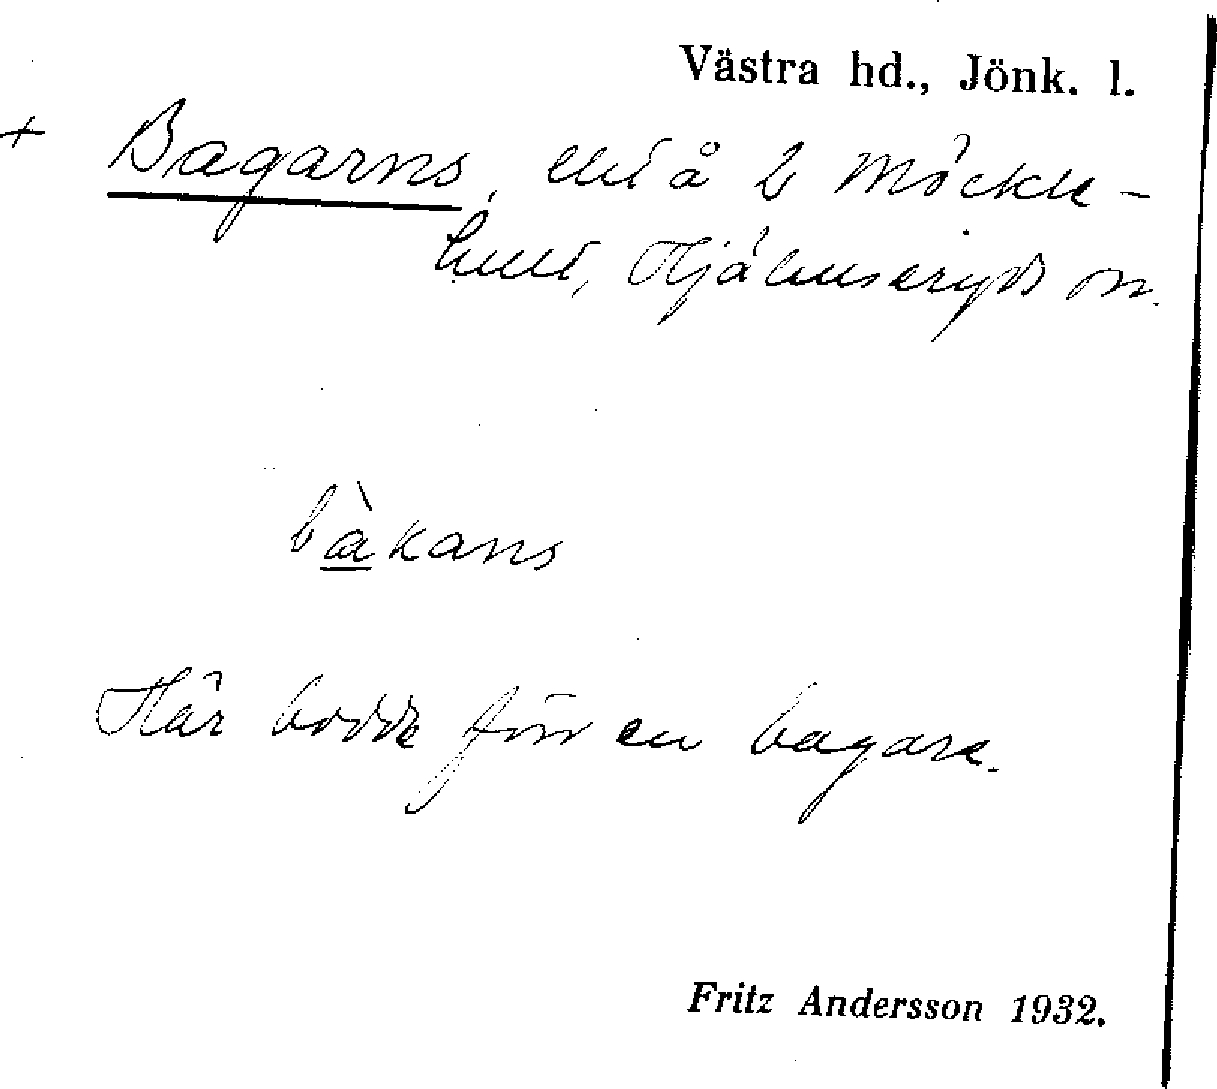 Västra hd., Jönk. l.
+ Bagarns, elt å b Möckle-
hult, Hjälmseryds sn.
bàkans
Här bodde förr en bagare.
Fritz Andersson 1932.